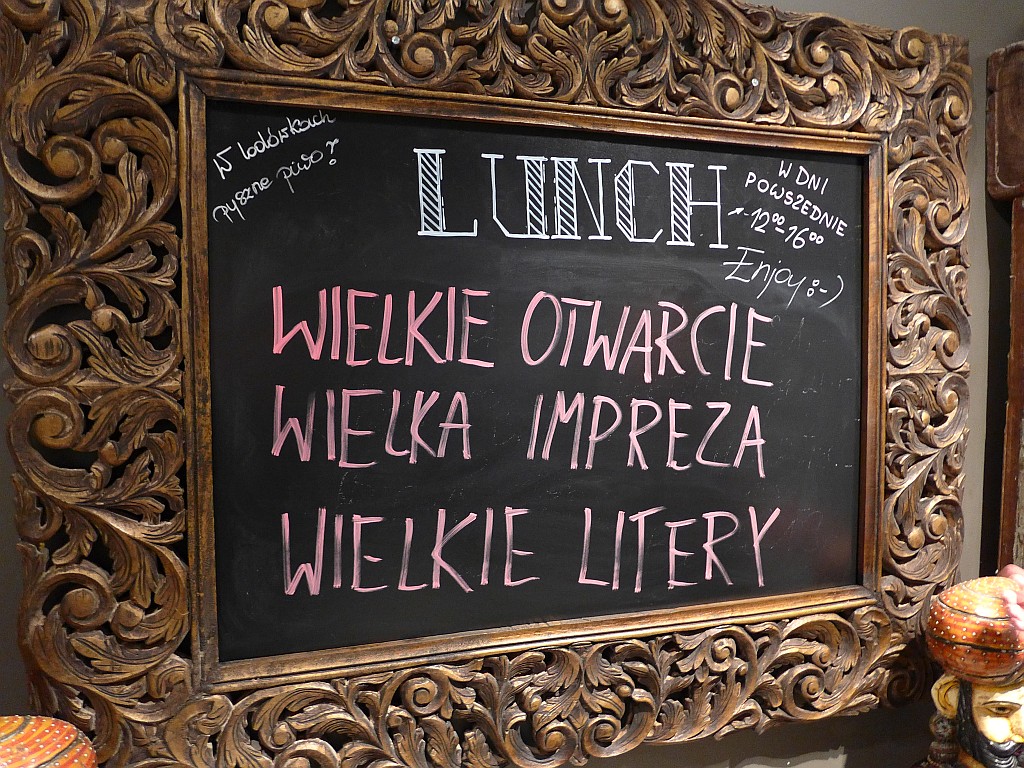 W lodówkach
pyszne piwo?
LUNCH
W DNI
POWSZEDNIE
12⁰⁰-16⁰⁰
Enjoy :-)
WIELKIE OTWARCIE
WIELKA IMPREZA
WIELKIE LITERY